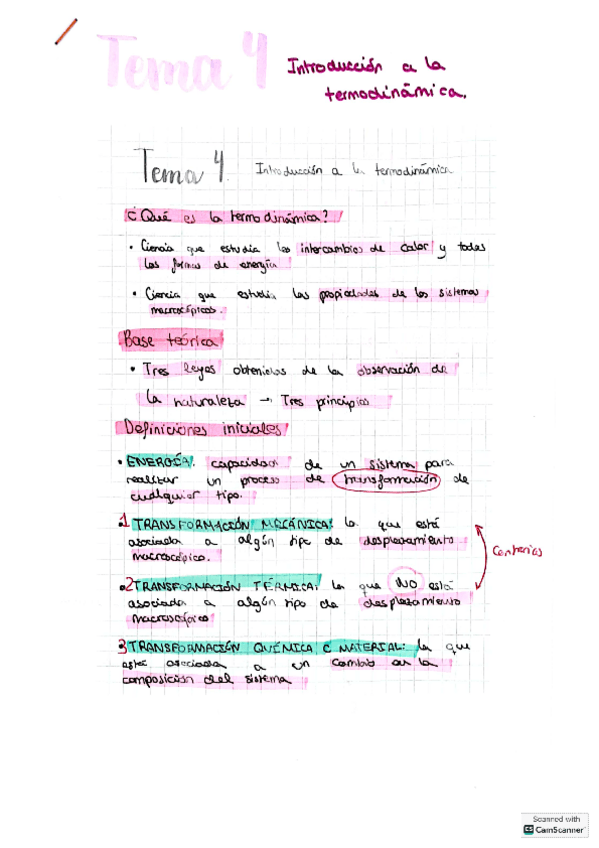 Tema 4 Introducción a la
termodinámica.
Tema 4. Introducción a la termodinámica
¿Qué es la termodinámica?
• Ciencia que estudia los intercambios de calor y todas
las formas de energía
• Ciencia que estudia las propiedades de los sistemas
macroscópicos.
Base teórica
• Tres leyes obtenidas de la observación de
la naturaleza → Tres principios
Definiciones iniciales
• ENERGÍA: capacidad de un sistema para
realizar un proceso de transformación de
cualquier tipo.
1 TRANSFORMACIÓN MECÁNICA: la que está
asociada a algún tipo de desplazamiento
macroscópico.
Contrarias
2 TRANSFORMACIÓN TÉRMICA: la que NO está
asociada a algún tipo de desplazamiento
macroscópico
3 TRANSFORMACIÓN QUÍMICA O MATERIAL: la que
está asociada a un cambio en la
composición del sistema
Scanned with
CS CamScanner